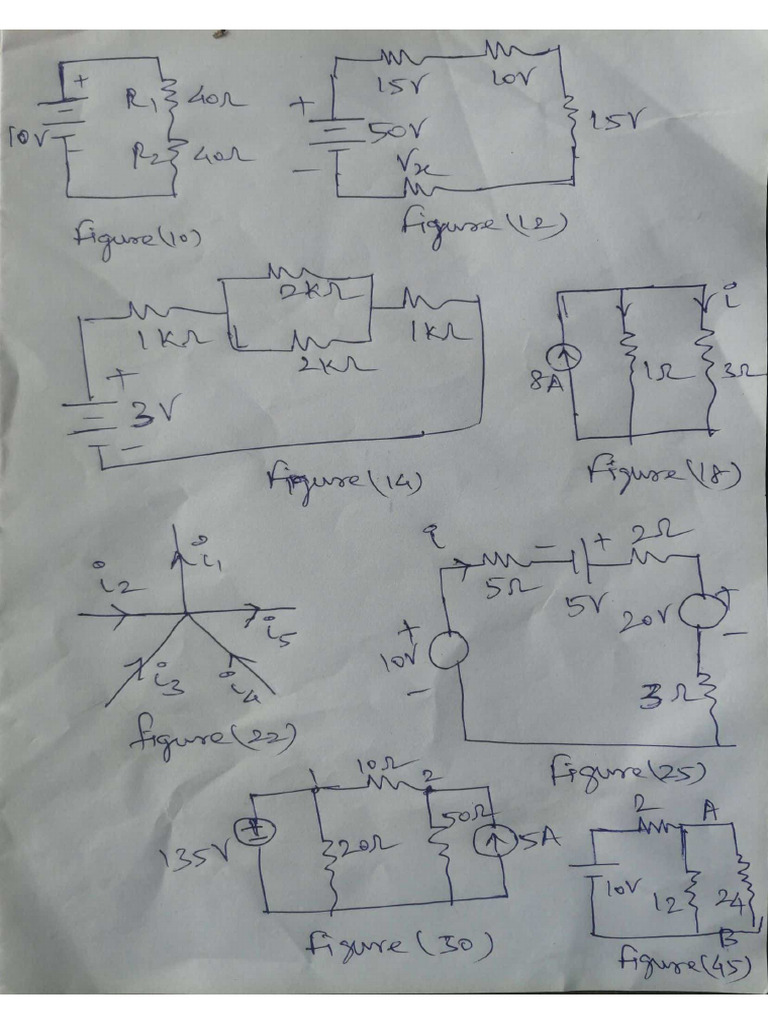 +
R1 40Ω
10V
-
R2 40Ω
figure(10)
15V
10V
+
50V
15V
Vx
-
figure(12)
2KΩ
1KΩ
2KΩ
1KΩ
+
3V
-
figure(14)
i
8A
1Ω
3Ω
figure(18)
i1
i2
i5
i3
i4
figure(22)
- + 2Ω
5Ω
5V
+
20V
-
+
10V
-
3Ω
figure(25)
1 10Ω 2
50Ω
135V
+
20Ω
5A
figure(30)
2 A
10V
12
24
B
figure(45)